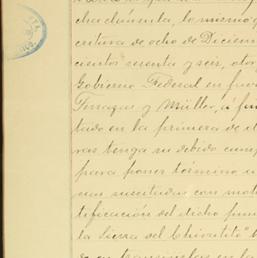 chadamente, lo mismo q
critura de ocho de Diciem
cientos sesenta y seis, otor
Gobierno Federal en favo
Terrazas y Müller, á fin
tado en la primera de di
ras tenga su debido cump
para poner término a
nas suscitadas con moti
tificación del dicho pun
la Sierra del Chivatito"